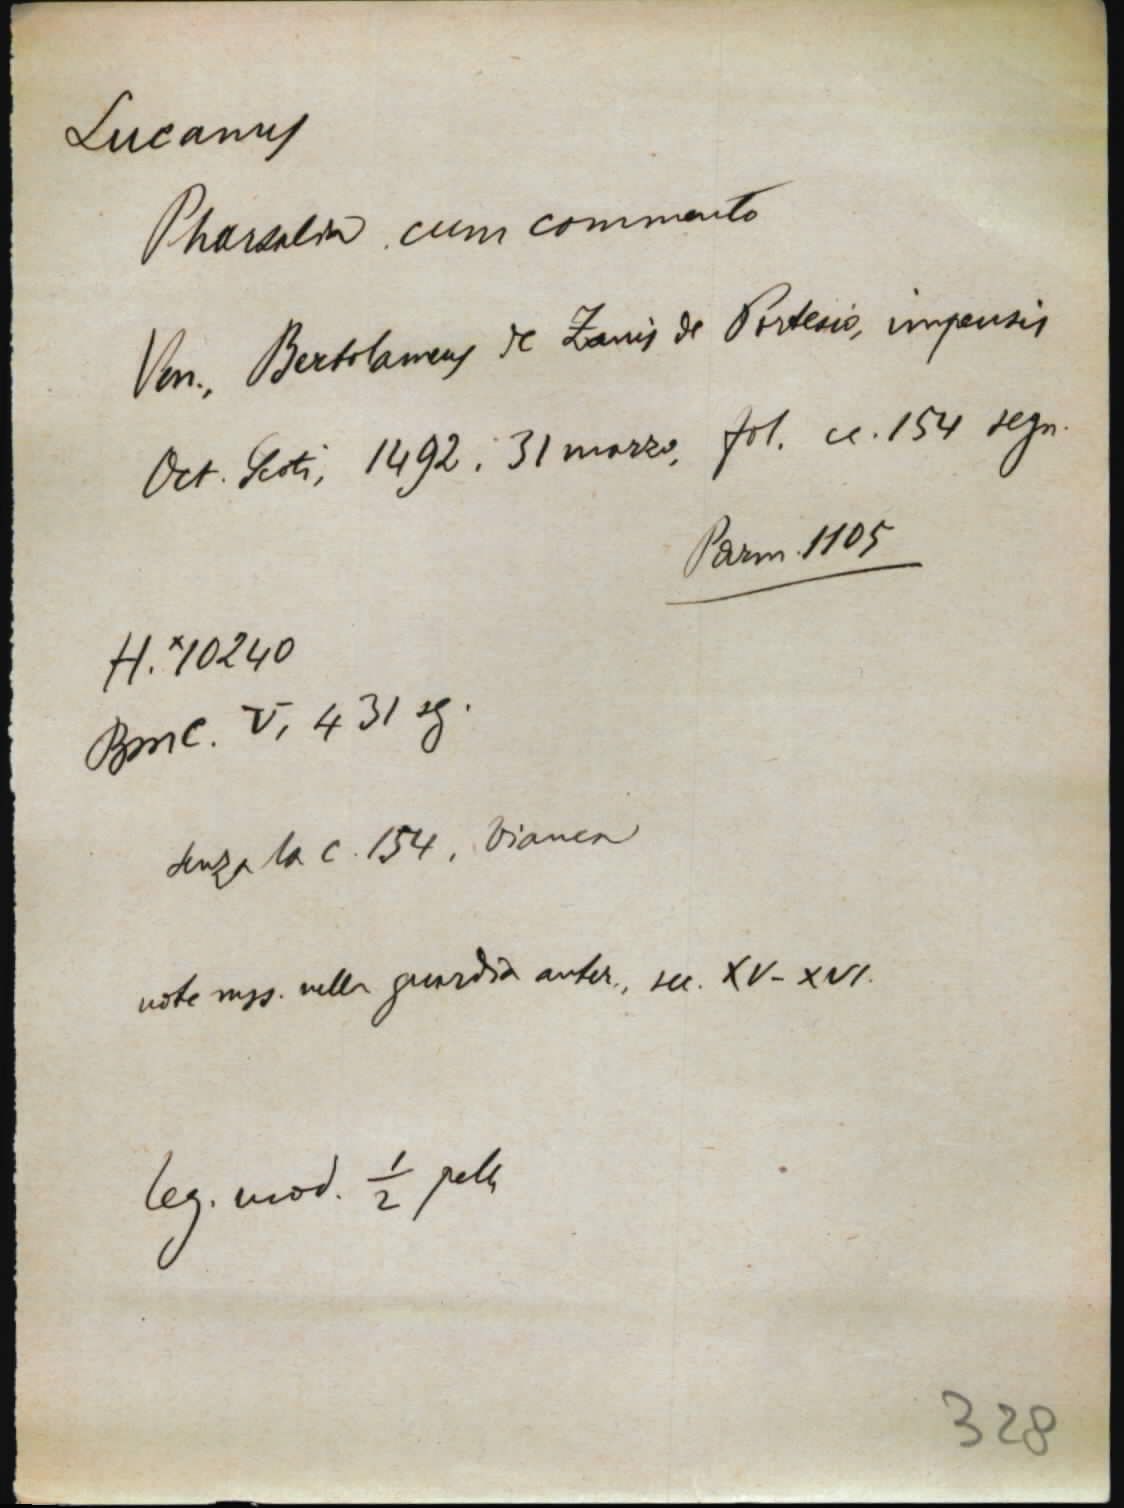 Lucanus
Pharsalia cum commento
Ven., Bertolameus de Zanis de Portesio, impensis
Oct. Scoti, 1492. 31 marzo, fol. cc. 154 segn.
Parm. 1105
H.*10240
BMC. V, 431 sg.
senza la c. 154, bianca
note mss. nella guardia anter., sec. XV-XVI.
leg. mod. 1/2 pelle
328